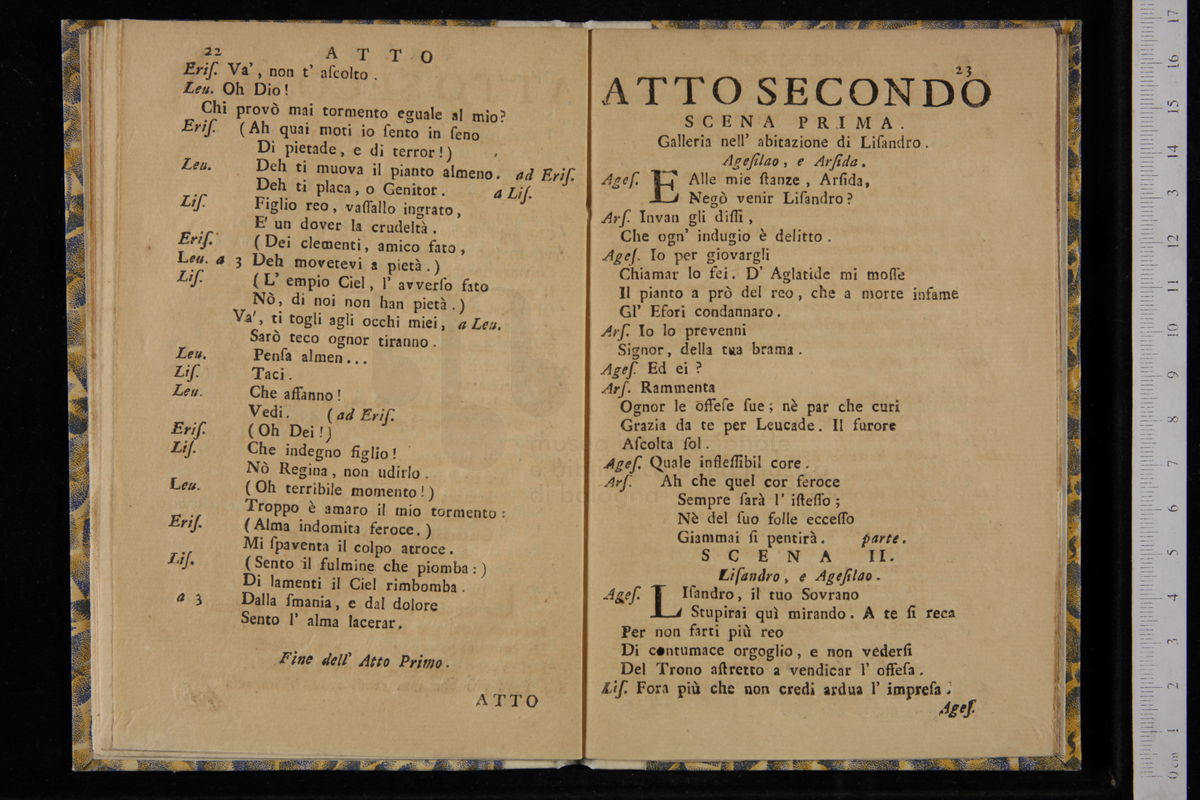 22 A T T O
Eriſ. Va', non t' aſcolto.
Leu. Oh Dio!
Chi provò mai tormento eguale al mio?
Eriſ. (Ah quai moti io ſento in ſeno
Di pietade, e di terror!)
Leu. Deh ti muova il pianto almeno. ad Eriſ.
Deh ti placa, o Genitor. a Liſ.
Liſ. Figlio reo, vaſſallo ingrato,
E' un dover la crudeltà.
Eriſ. (Dei clementi, amico fato,
Leu. a 3 Deh movetevi a pietà.)
Liſ. (L' empio Ciel, l' avverſo fato
Nò, di noi non han pietà.)
Va', ti togli agli occhi miei, a Leu.
Sarò teco ognor tiranno.
Leu. Penſa almen...
Liſ. Taci.
Leu. Che affanno!
Vedi. (ad Eriſ.
Eriſ. (Oh Dei!)
Liſ. Che indegno figlio!
Nò Regina, non udirlo.
Leu. (Oh terribile momento!)
Troppo è amaro il mio tormento:
Eriſ. (Alma indomita feroce.)
Mi ſpaventa il colpo atroce.
Liſ. (Sento il fulmine che piomba:)
Di lamenti il Ciel rimbomba.
a 3 Dalla ſmania, e dal dolore
Sento l' alma lacerar.
Fine dell' Atto Primo.
ATTO
23
ATTO SECONDO
SCENA PRIMA.
Galleria nell' abitazione di Liſandro.
Ageſilao, e Arſida.
Ageſ. E Alle mie ſtanze, Arſida,
Negò venir Liſandro?
Arſ. Invan gli diſſi,
Che ogn' indugio è delitto.
Ageſ. Io per giovargli
Chiamar lo fei. D' Aglatide mi moſſe
Il pianto a prò del reo, che a morte infame
Gl' Efori condannaro.
Arſ. Io lo prevenni
Signor, della tua brama.
Ageſ. Ed ei?
Arſ. Rammenta
Ognor le offeſe ſue; nè par che curi
Grazia da te per Leucade. Il furore
Aſcolta ſol.
Ageſ. Quale infleſſibil core.
Arſ. Ah che quel cor feroce
Sempre ſarà l' iſteſſo;
Nè del ſuo folle ecceſſo
Giammai ſi pentirà. parte.
S C E N A II.
Liſandro, e Ageſilao.
Ageſ. LIſandro, il tuo Sovrano
Stupirai quì mirando. A te ſi reca
Per non farti più reo
Di contumace orgoglio, e non vederſi
Del Trono aſtretto a vendicar l' offeſa.
Liſ. Fora più che non credi ardua l' impreſa.
Ageſ.